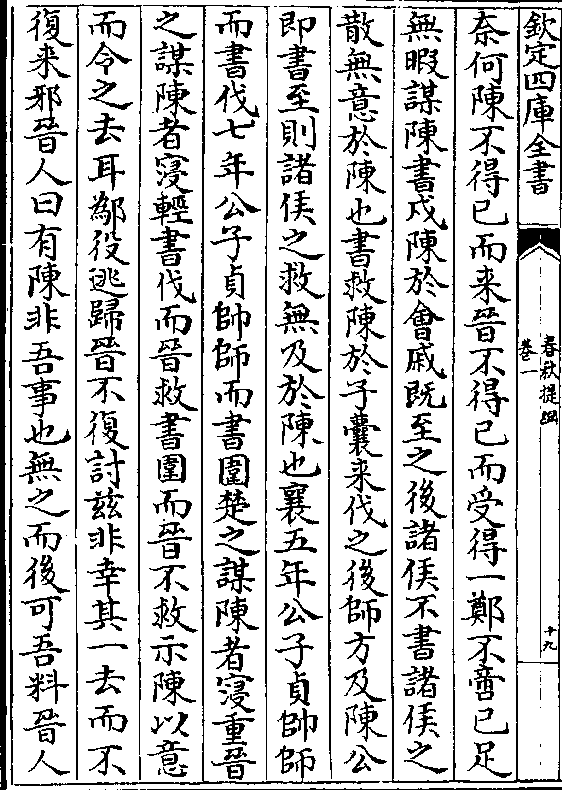 欽定四庫全書
春秋提綱
卷一
十九
奈何陳不得已而来晉不得已而受得一鄭不啻已足
無暇謀陳書戍陳於會戚既至之後諸侯不書諸侯之
散無意於陳也書救陳於子囊来伐之後師方及陳公
即書至則諸侯之救無及於陳也襄五年公子貞帥師
而書伐七年公子貞帥師而書圍楚之謀陳者寖重晉
之謀陳者寖輕書伐而晉救書圍而晉不救示陳以意
而令之去耳鄬役逃歸晉不復討兹非幸其一去而不
復来邪晉人曰有陳非吾事也無之而後可吾料晉人